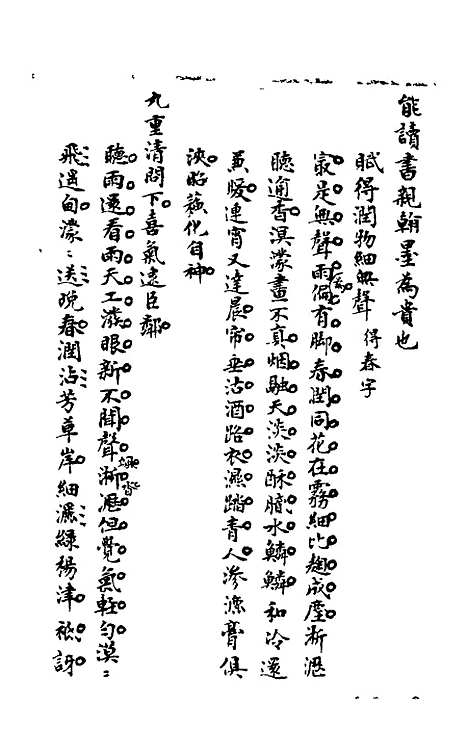 能讀書親翰墨為貴也
賦得潤物細無聲 得春字
最是無聲雨偏有腳春潤同花在霧細比麴成塵淅瀝
聽逾杳溟濛畫不真烟融天淡淡酥膩水鱗鱗和冷還
兼暖連宵又達晨帘垂沽酒路衣濕踏青人滲漉膏俱
浹昭蘇化自神
九重清問下喜氣遠臣鄰
聽雨還看雨天工潑眼新不聞聲淅瀝但覺氣輕勻漠〻
飛遇甸濛〻送晚春潤沾芳草岸細濕綠楊津袛訝